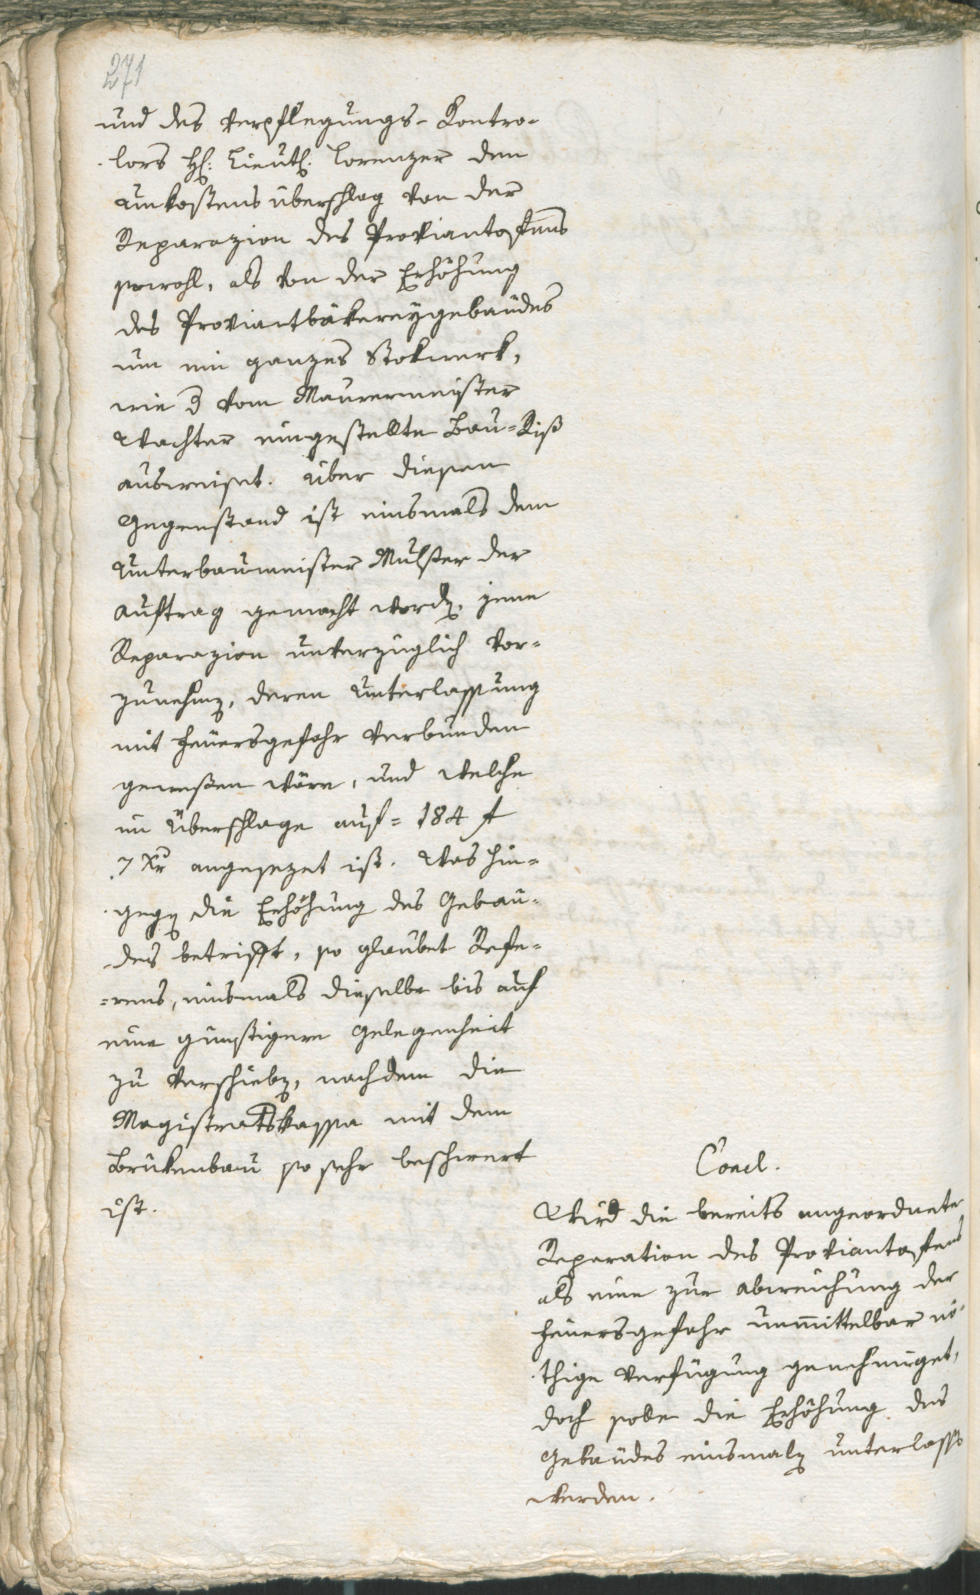 271
und des Verpflegungs-Kontro-
lors H: Lieut: Lorenzer den
Unkostensüberschlag von der
Reparazion des Proviantofens
sowohl, als von der Erhöhung
des Proviantbäkereÿgebaüdes
um ein ganzes Stokwerk,
wie d vom Maurermeister
Wachter eingestellte Bau-Riß
ausweiset. Über diesen
Gegenstand ist einsmals dem
Unterbaumeister Mulster der
Auftrag gemacht word, jene
Reparazion unverzüglich vor-
zunehm, deren Unterlassung
mit Feuersgefahr verbunden
gewesen wäre, und welche
im Überschlage auf = 184 f
7 Xr angesezet ist. Was hin-
geg die Erhöhung des Gebäu-
des betrifft, so glaubet Refe-
=rens, einsmals dieselbe bis auf
eine günstigere Gelegenheit
zu verschieb, nachdem die
Magistratskassa mit dem
Brükenbau so sehr beschwert
ist.
Concl.
Wird die bereits angeordnete
Reparation des Proviantofens
als eine zur Abweichung der
Feuersgefahr unmittelbar nö-
thige Verfügung genehmiget,
doch solle die Erhöhung des
Gebäudes einsmal unterlass
werden.